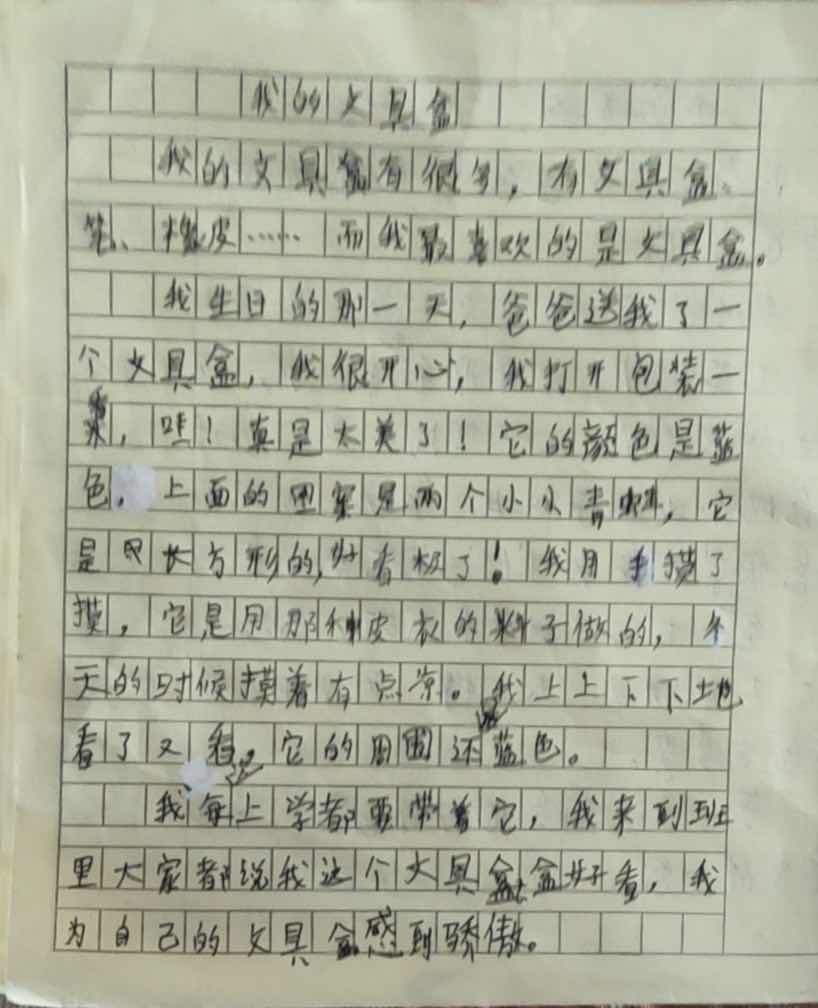 我的文具盒
我的文具盒有很多，有文具盒、
笔、橡皮……而我最喜欢的是文具盒。
我生日的那一天，爸爸送我了一
个文具盒，我很开心，我打开包装一
看，哇！真是太美了！它的颜色是蓝
色，上面的图案是两个小小青蛙，它
是长方形的，好看极了！我用手摸了
摸，它是用那种皮衣的料子做的，冬
天的时候摸着有点凉。我上上下下地
看了又看。它的周围还是蓝色。
我每上学都要带着它，我来到班
里大家都说我这个文具盒盒好看，我
为自己的文具盒感到骄傲。